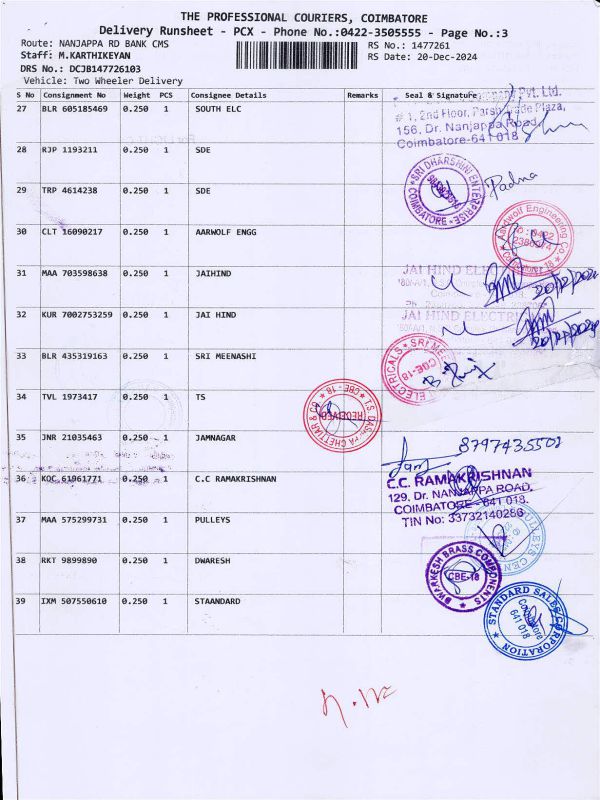 THE PROFESSIONAL COURIERS, COIMBATORE
Delivery Runsheet - PCX - Phone No.:0422-3505555 - Page No.:3
Route: NANJAPPA RD BANK CMS
RS No.: 1477261
Staff: M.KARTHIKEYAN
RS Date: 20-Dec-2024
DRS No.: DCJB147726103
Vehicle: Two Wheeler Delivery
S No Consignment No Weight PCS Consignee Details Remarks Seal & Signature
27 BLR 605185469 0.250 1 SOUTH ELC
Pvt. Ltd.
# 1, 2nd Floor, Parsn Trade Plaza,
156, Dr. Nanjappa Road,
Coimbatore-641 018
28 RJP 1193211 0.250 1 SDE
SRI DHARSHINI ENTERPRISE
COIMBATORE
Padma
29 TRP 4614238 0.250 1 SDE
30 CLT 16090217 0.250 1 AARWOLF ENGG
Aardwolf Engineering Co
Coimbatore-18
31 MAA 703598638 0.250 1 JAIHIND
JAI HIND
20/12/2024
32 KUR 7002753259 0.250 1 JAI HIND
JAI HIND ELECTRI
20/12/2024
33 BLR 435319163 0.250 1 SRI MEENASHI
SRI MEE
ELECTRICALS
CBE-18
34 TVL 1973417 0.250 1 TS
CBE - 18
RECEIVED
CHETTIAR & CO
35 JNR 21035463 0.250 1 JAMNAGAR
8797435508
36 KOC 61961771 0.250 1 C.C RAMAKRISHNAN
C.C. RAMAKRISHNAN
129, Dr. NANJAPPA ROAD,
COIMBATORE - 641 018.
TIN No: 33732140286
37 MAA 575299731 0.250 1 PULLEYS
PULLEYS CEN
38 RKT 9899890 0.250 1 DWARESH
DWARKESH BRASS COMPONENTS
CBE-18
39 IXM 507550610 0.250 1 STAANDARD
STANDARD SALES CORPORATION
Coimbatore
641 018